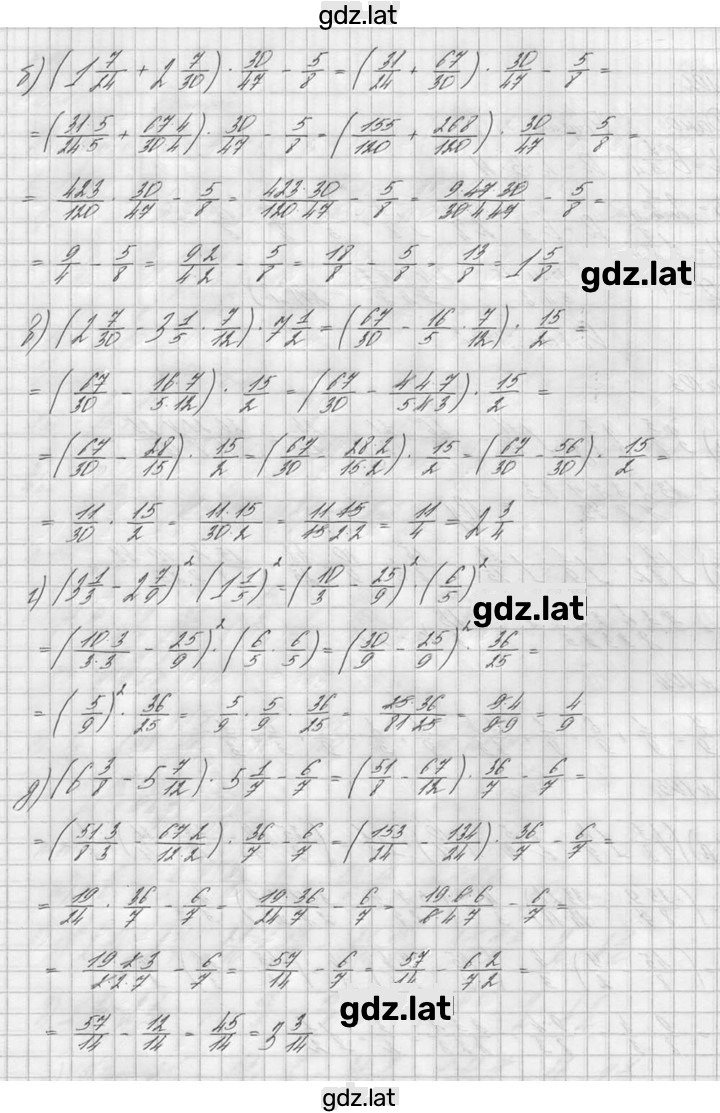 gdz.lat
б) (1 7/24 + 2 7/30) · 30/47 − 5/8 = (31/24 + 67/30) · 30/47 − 5/8 =
= (31·5/24·5 + 67·4/30·4) · 30/47 − 5/8 = (155/120 + 268/120) · 30/47 − 5/8 =
= 423/120 · 30/47 − 5/8 = 423·30/120·47 − 5/8 = 9·47·30/30·4·47 − 5/8 =
= 9/4 − 5/8 = 9·2/4·2 − 5/8 = 18/8 − 5/8 = 13/8 = 1 5/8
gdz.lat
в) (2 7/30 − 3 1/5 · 7/12) · 7 1/2 = (67/30 − 16/5 · 7/12) · 15/2 =
= (67/30 − 16·7/5·12) · 15/2 = (67/30 − 4·4·7/5·4·3) · 15/2 =
= (67/30 − 28/15) · 15/2 = (67/30 − 28·2/15·2) · 15/2 = (67/30 − 56/30) · 15/2 =
= 11/30 · 15/2 = 11·15/30·2 = 11·15/15·2·2 = 11/4 = 2 3/4
г) (3 1/3 − 2 7/9)² · (1 1/5)² = (10/3 − 25/9)² · (6/5)²
gdz.lat
= (10·3/3·3 − 25/9)² · (6/5 · 6/5) = (30/9 − 25/9)² · 36/25 =
= (5/9)² · 36/25 = 5/9 · 5/9 · 36/25 = 25·36/81·25 = 9·4/9·9 = 4/9
д) (6 3/8 − 5 7/12) · 5 1/7 − 6/7 = (51/8 − 67/12) · 36/7 − 6/7 =
= (51·3/8·3 − 67·2/12·2) · 36/7 − 6/7 = (153/24 − 134/24) · 36/7 − 6/7 =
= 19/24 · 36/7 − 6/7 = 19·36/24·7 − 6/7 = 19·6·6/6·4·7 − 6/7 =
= 19·2·3/2·2·7 − 6/7 = 57/14 − 6/7 = 57/14 − 6·2/7·2 =
gdz.lat
= 57/14 − 12/14 = 45/14 = 3 3/14
gdz.lat